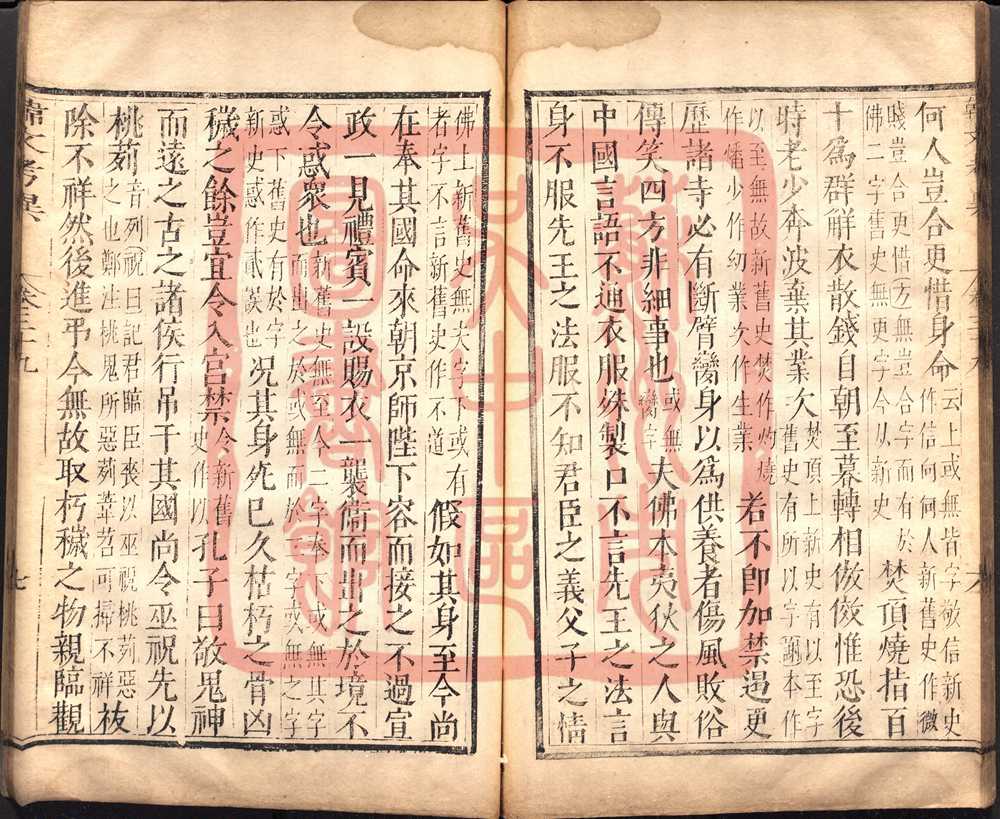 何人豈合更惜身命云上或無皆字敬信新史作信向何人新舊史作微
賤豈合更惜方無豈合字而有於佛二字舊史無更字今从新史焚頂燒指百
十爲群解衣散錢自朝至暮轉相倣傚惟恐後
時老少奔波棄其業次焚頂上新史有以至字舊史有所以字謝本作
以至無故新舊史焚作灼燒作燔少作幼業次作生業若不即加禁遏更
歷諸寺必有斷臂臠身以爲供養者傷風敗俗
傳笑四方非細事也或無臠字夫佛本夷狄之人與
中國言語不通衣服殊製口不言先王之法言
身不服先王之法服不知君臣之義父子之情
佛上新舊史無夫字下或有者字不言新舊史作不道假如其身至今尚
在奉其國命來朝京師陛下容而接之不過宣
政一見禮賓一設賜衣一襲衞而出之於境不
令惑衆也新舊史無至今二字奉下或無其字而出之於或無而於二字或無之字
惑下舊史有於字新史惑作貳誤也況其身死已久枯朽之骨凶
穢之餘豈宜令入宮禁令新舊史作以孔子曰敬鬼神
而遠之古之諸侯行弔于其國尚令巫祝先以
桃茢音列祝曰記君臨臣喪以巫祝桃茢惡之也鄭注桃鬼所惡茢萑苕可掃不祥祓
除不祥然後進弔今無故取朽穢之物親臨觀
韓文考異 卷三十九 七